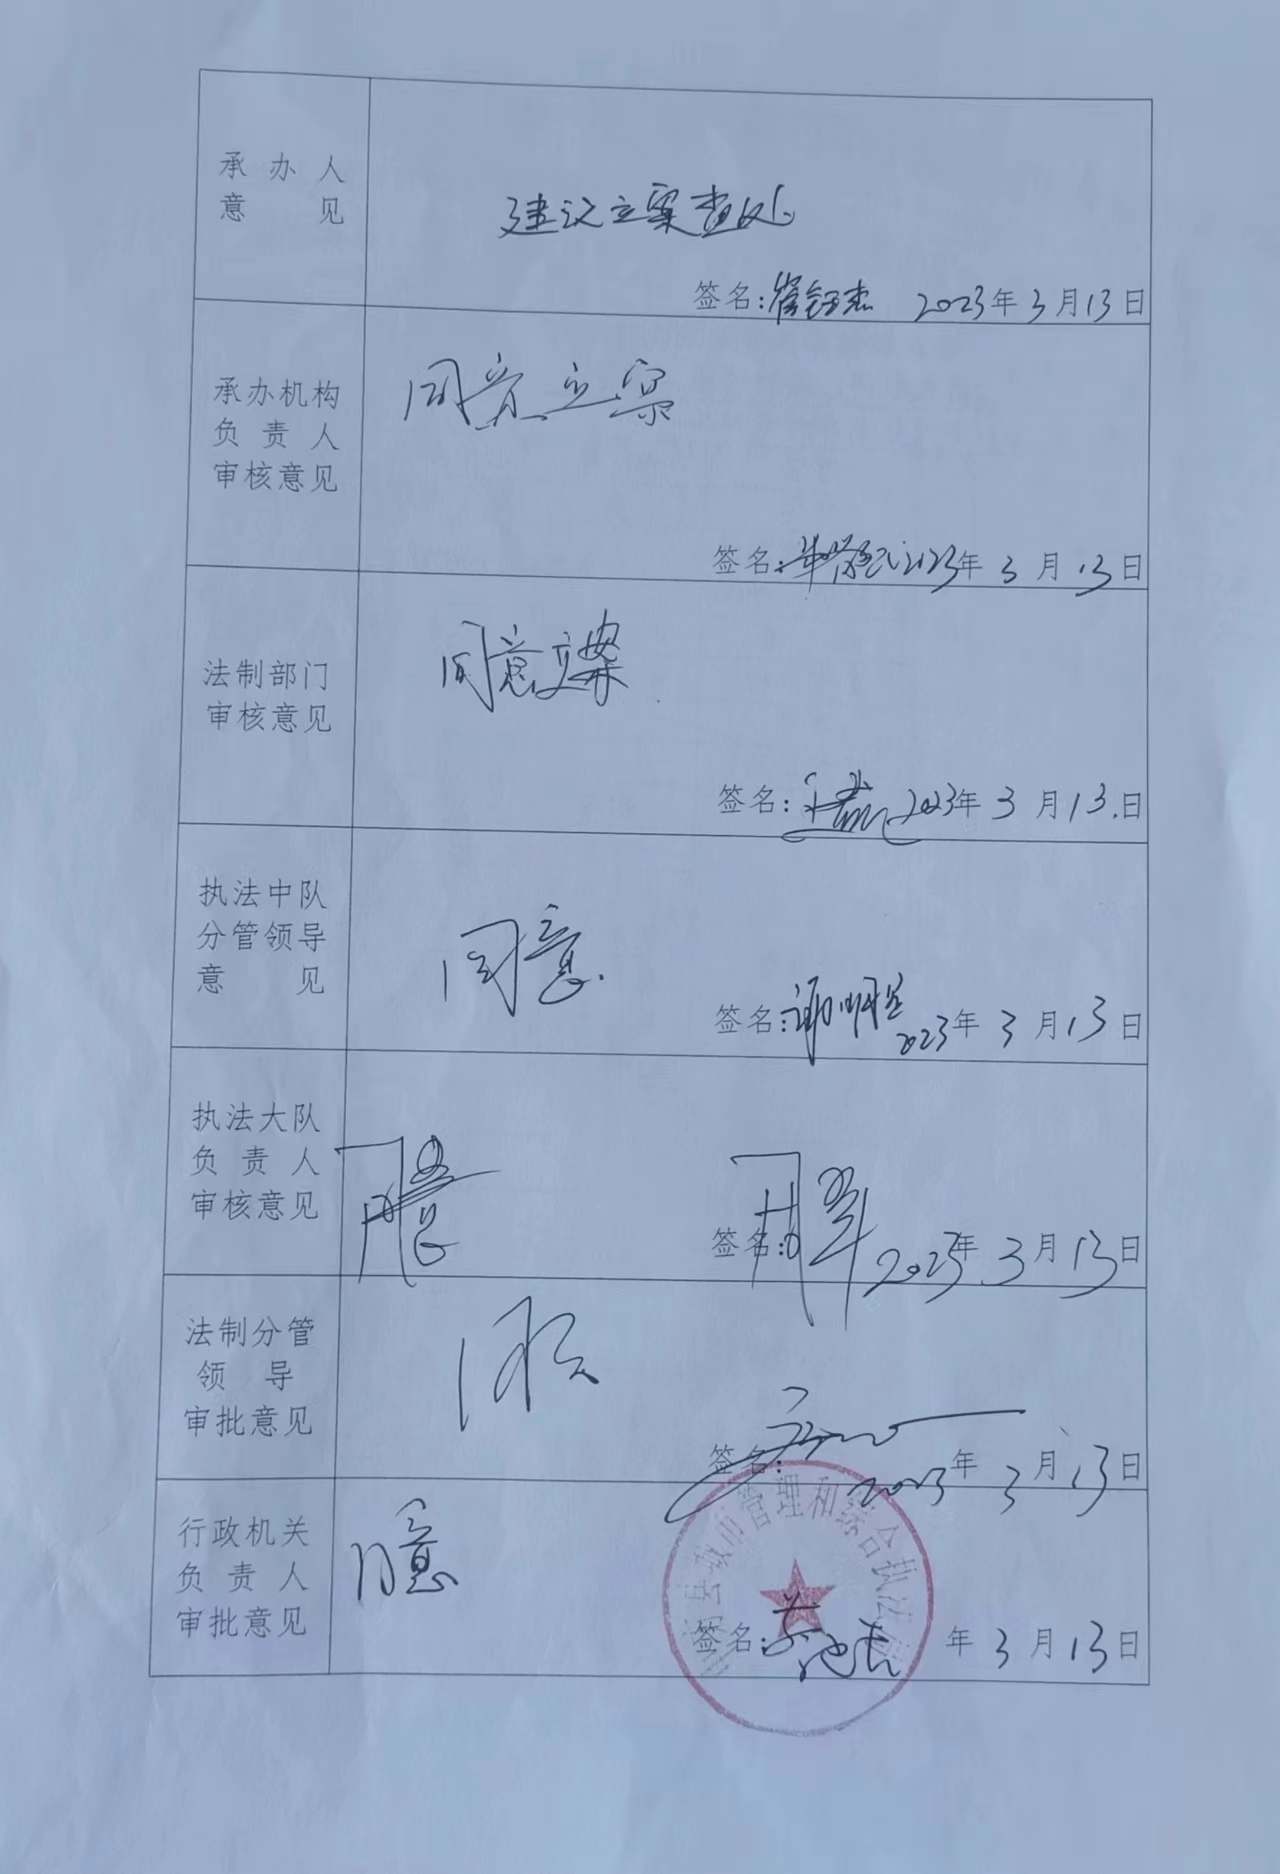 承办人
意见
建议立案查处
签名:崔钰杰 2023年3月13日
承办机构
负责人
审核意见
同意立案
签名: 2023年3月13日
法制部门
审核意见
同意立案
签名: 2023年3月13日
执法中队
分管领导
意见
同意
签名: 2023年3月13日
执法大队
负责人
审核意见
同意
签名: 2023年3月13日
法制分管
领导
审批意见
签名: 2023年3月13日
行政机关
负责人
审批意见
同意
签名: 年3月13日
县城市管理和综合执法局